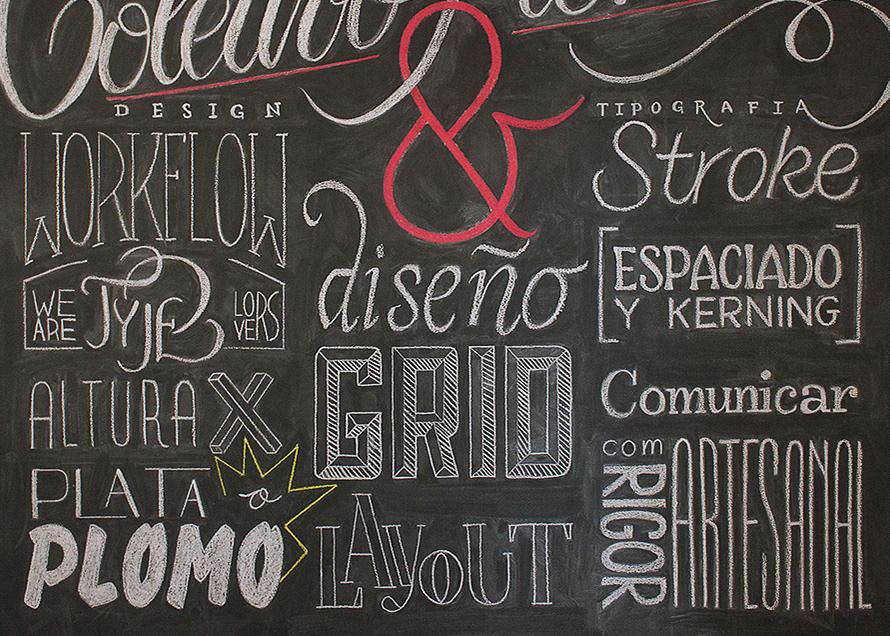 &
DESIGN
WORKFLOW
WE ARE TYPE LOVERS
ALTURA X
PLATA o
PLOMO
diseño
GRID
LAYOUT
TIPOGRAFIA
Stroke
[ESPACIADO
Y KERNING]
Comunicar
com
RIGOR
ARTESANAL